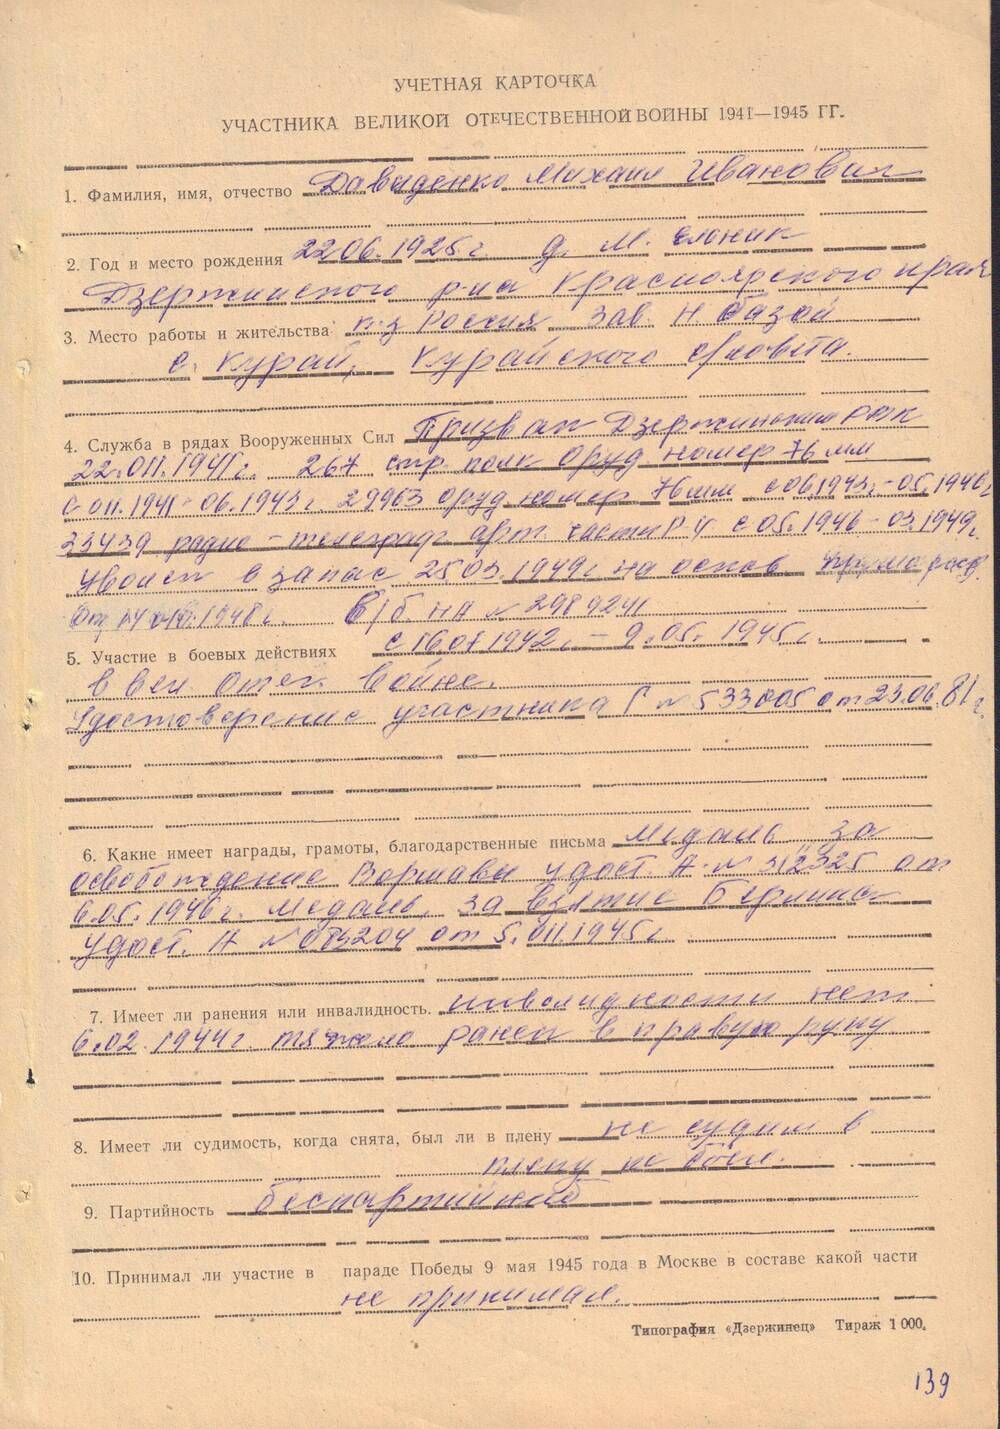 УЧЕТНАЯ КАРТОЧКА
УЧАСТНИКА ВЕЛИКОЙ ОТЕЧЕСТВЕННОЙ ВОЙНЫ 1941—1945 ГГ.
1. Фамилия, имя, отчество Давыденко Михаил Иванович
2. Год и место рождения 22.06.1925г. д. М. Ельник
Дзержинского р-на Красноярского края
3. Место работы и жительства п.з Россия Зав. Н. базой
с. Курай, Курайского с/совета.
4. Служба в рядах Вооруженных Сил Призван Дзержинским РВК
22.011.1941г. 267 стр. полк Оруд. номер 76 мм
с 011.1941-06.1943г. 29963 Оруд. номер 76мм с 06.1943г.-05.1946г
33439 радио-телеграф. Арт. части с 05.1946-03.1949г.
Уволен в запас 25.03.1949г. на основ.
В/б. НА № 2989241
5. Участие в боевых действиях с 16.01.1942г. - 9.05.1945г.
в Вел. Отеч. Войне.
Удостоверение участника Г № 533005 от 23.06.81г.
6. Какие имеет награды, грамоты, благодарственные письма Медаль За
освобождение Варшавы удост. А-№ 312325 от
6.05.1946г. Медаль, за взятие Берлина
удост. А № 084204 от 5.011.1945г
7. Имеет ли ранения или инвалидность. инвалидности нет
6.02.1944г. тяжело ранен в правую руку
8. Имеет ли судимость, когда снята, был ли в плену не судим в
плену не был.
9. Партийность беспартийный
10. Принимал ли участие в параде Победы 9 мая 1945 года в Москве в составе какой части
не принимал.
Типография «Дзержинец» Тираж 1 000.
139